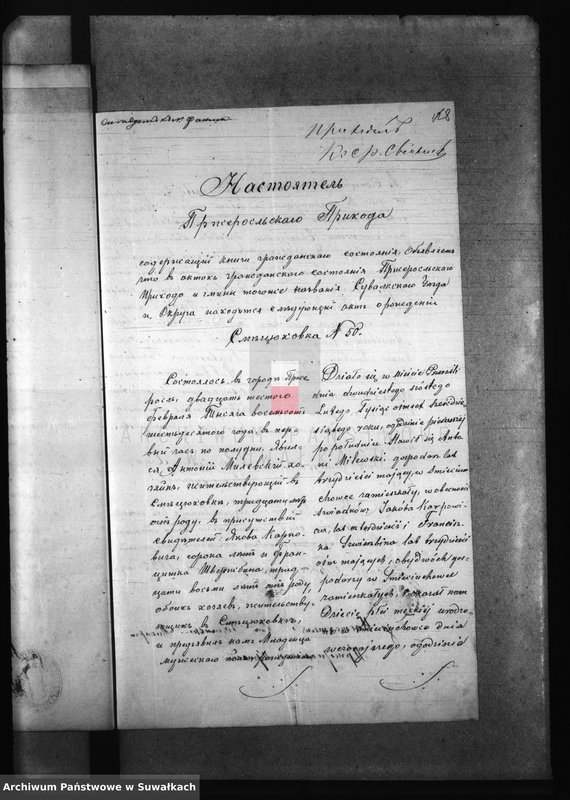 18
Приходъ
Настоятель
Пржеросльскаго Прихода
содержащій книги гражданскаго состоянія, объявляетъ
что въ актахъ гражданскаго состоянія Пржеросльскаго
Прихода и гмины тогоже названія Сувалкскаго Уезда
и Округа находится слѣдующій актъ о рожденіи
Смѣцюховка N 50.
Состоялось въ городѣ Прже
росль, двадцать шестого
Февраля Тысяча восемьсотъ
шестьдесятого года, въ пер
вый часъ по полудни. Явил
ся Антоній Милевскій хо
зяинъ, жительствующій въ
Смѣцюховкѣ, тридцати лѣтъ
отъ роду, въ присутствіи
свидѣтелей: Якова Карпо
вича, сорока лѣтъ и Фран
цишка Швержбина, трид
цати восьми лѣтъ отъ роду
обоихъ хозяевъ, жительству
ющихъ въ Смѣцюховкѣ,
и предъявилъ намъ Младенца
мужескаго пола,
Działo się w mieście Przerośli
dnia dwudziestego szóstego
Lutego Tysiąc ośmset sześćdzie
siątego roku, o godzinie pierwszej
po południu Stawił się Anto
ni Milewski gospodarz lat
trzydzieści mający w Śmieciu
chowce zamieszkały, w obecności
świadków Jakóba Karpowi
cza, lat czterdzieści i Francisz
ka Swierzbina lat trzydzieści
ośm mających, obydwóch gos
podarzy w Śmieciuchowce
zamieszkałych, i okazał nam
Dziecię płci męzkiej urodzo
dnia
wczorajszego, o godzinie
Archiwum Państwowe w Suwałkach